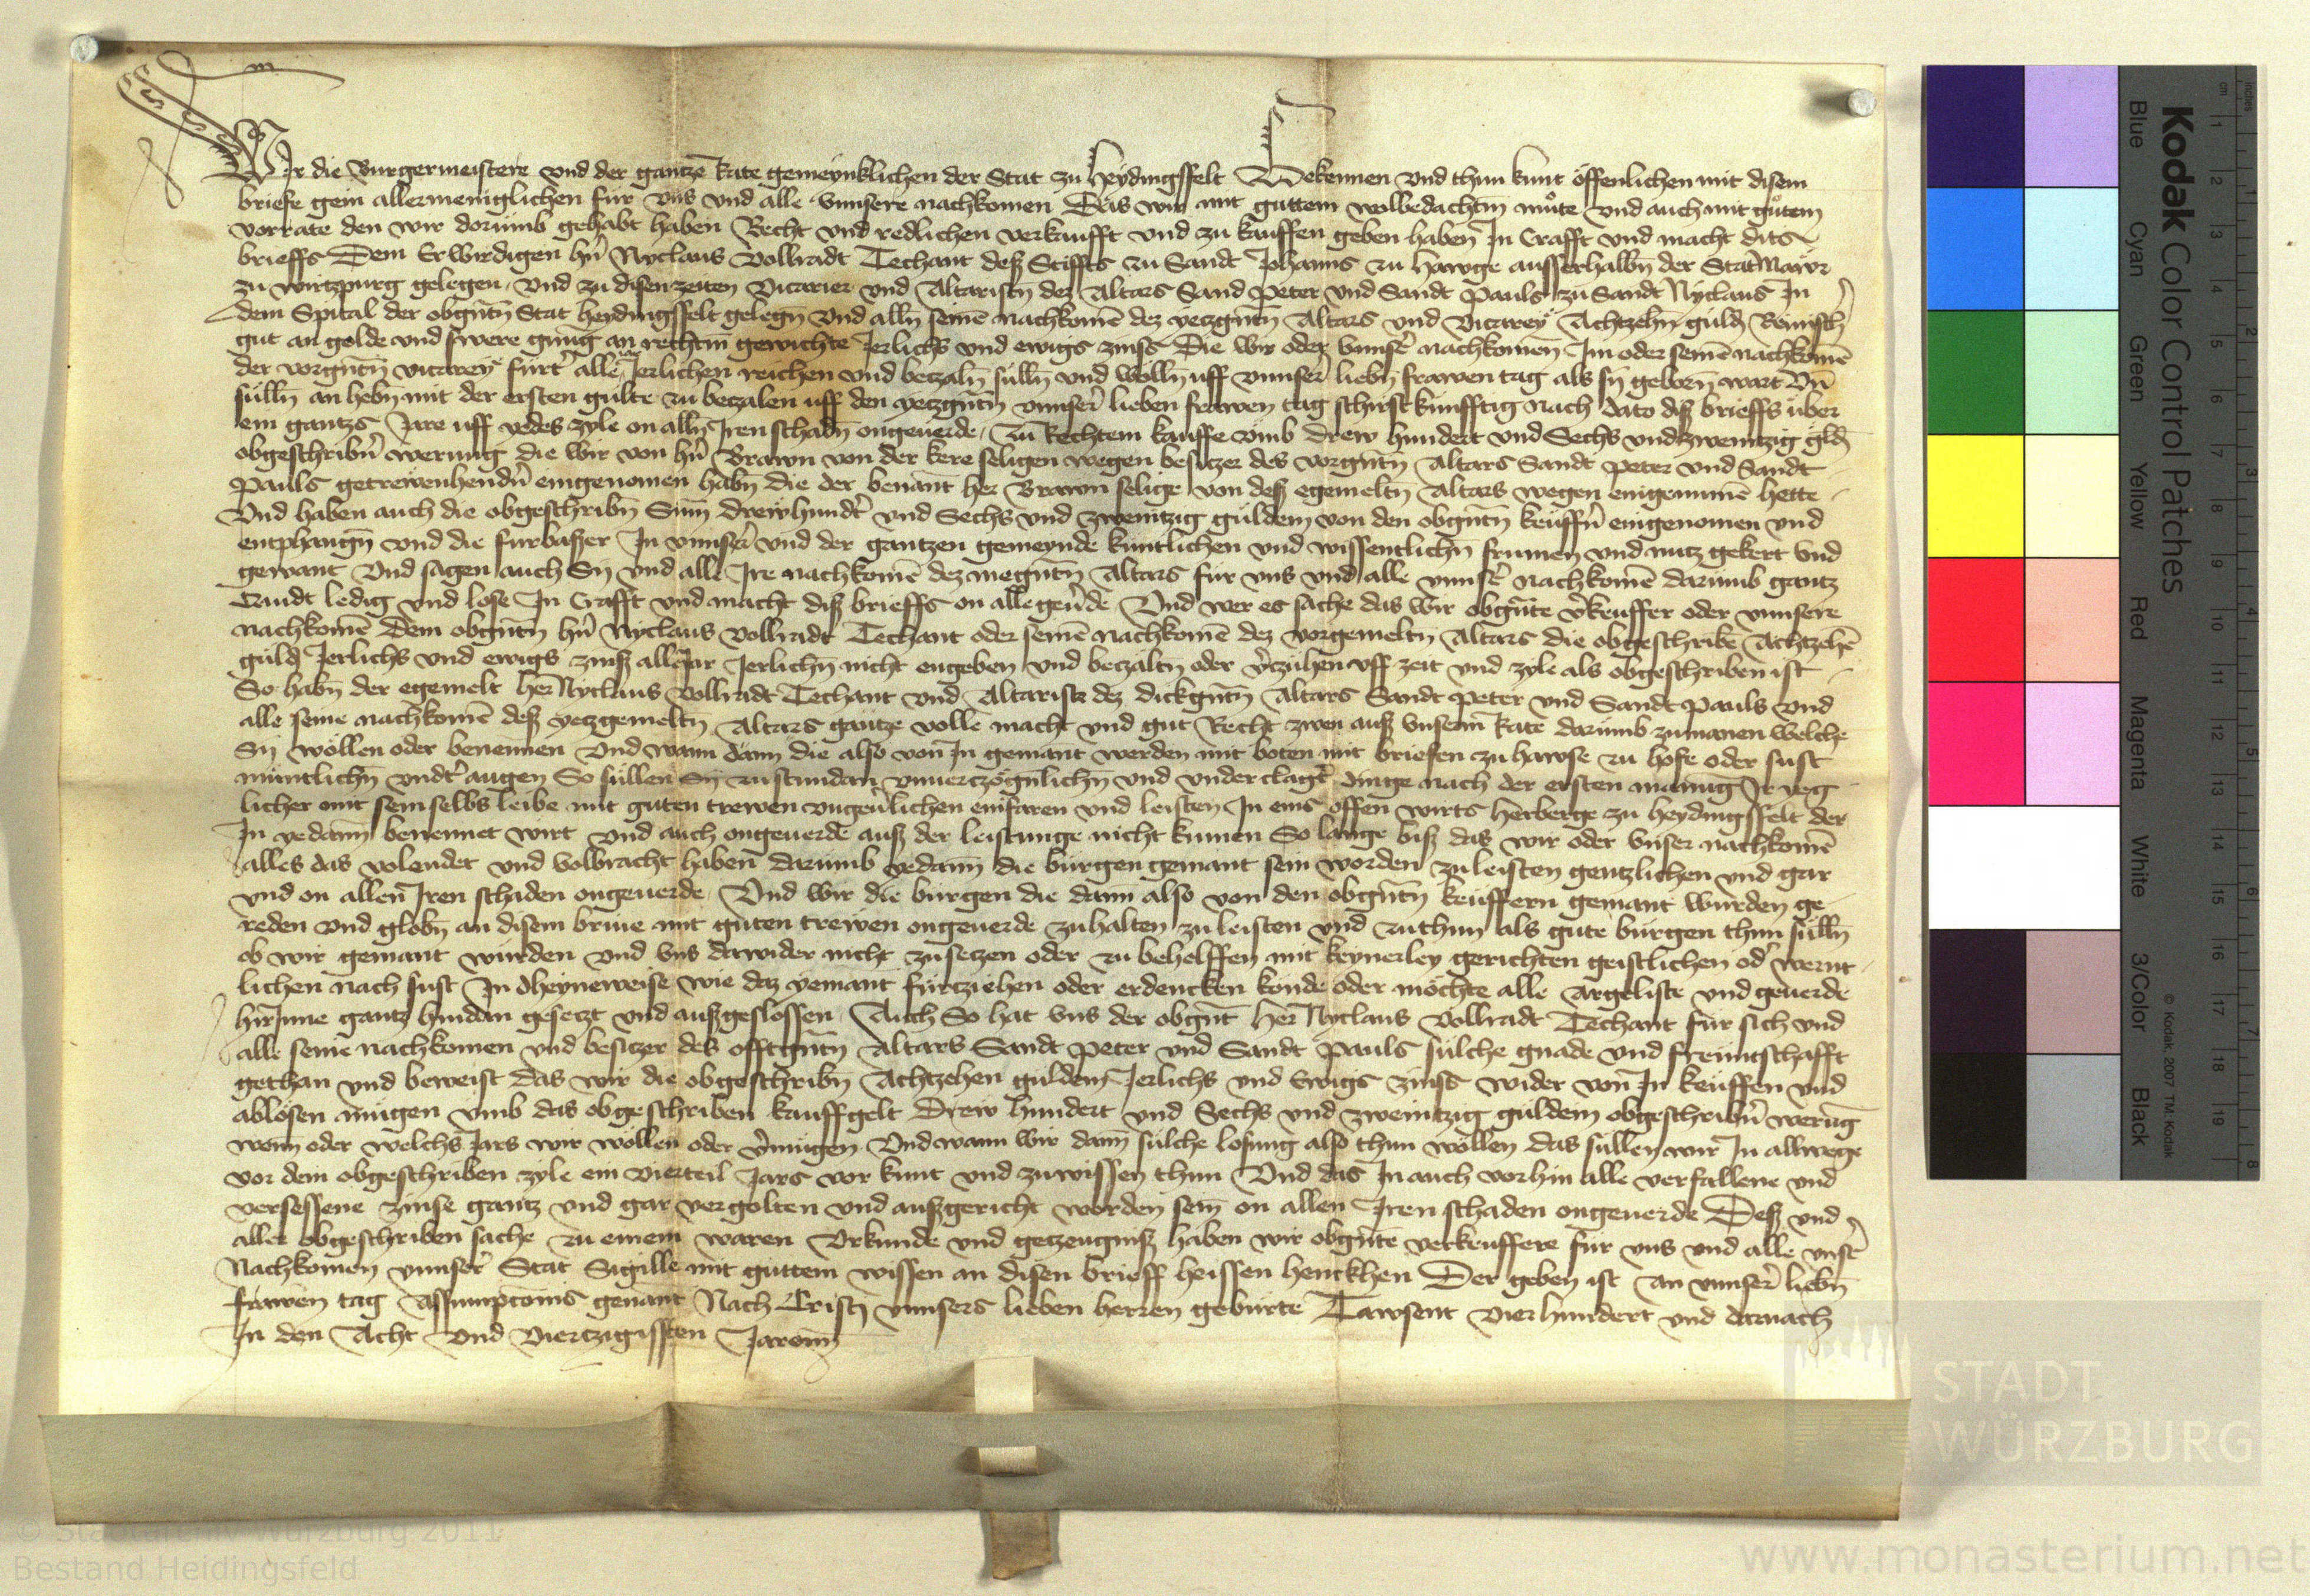 Wir die Burgermeistere vnd der gantze Rate gemeynklichen der Stat zu Heydingsfelt Bekennen vnd thun kunt offenlichen mit disem
briefe gein allermeniglichen fur vns vnd alle vnnsere nachkomen Das wir mit guttem wolbedachtm můte vnd auch mit gůtem
vorrate den wir dorumb gehabt haben Recht vnd redlichen verkaufft vnd zu kauffen geben haben In Crafft vnd macht dits
brieffs Dem Erwirdigen hn̄ Nyclaus Vollradt Techant deß Stiffts zu Sandt Johanns zu Hawge ausserhalbn̄ der Stat Mawr
zu wirtzpurg gelegen vnd zu disen zeiten Vicarier vnd Altaristn̄ dez Altars Sand Peter vnd Sandt Pauls zu Sandt Nyclaus In
dem Spital der obgnn̄tn̄ Stat heydingsfelt gelegn̄ vnd alln̄ seinē nachkomē dez yetzgnn̄tn̄ Altars vnd Vicarey Achtzehn̄ guld Reinisch
gut an golde vnd swere gnug an rechtm gewichte Jerlichs vnd ewigs zinss Die wir oder vnnser̄ nachkomen Im oder seinē nachkomē
der vorgnn̄tn̄ vicarey furt̄ alle Jerlichen reichen vnd betzaln̄ sulln̄ vnd wolln̄ uff vnnser̄ liebn̄ frawen tag als sy geborn̄ wart Vn̄
sulln̄ an hebn̄ mit der ersten gulte zu betzalen uff den yetzgnn̄tn̄ vnnser̄ lieben frawen tag schirst kunfftig nach dato diß brieffs uber
ein gantzs Jare uff yedes zyle on alln̄ Iren schadn̄ ongeuerde Zu Rechtem kauffe vmb drew hundert vnd Sechs vnd zweintzig gld
obgeschribn̄ werung die wir von hn̄ Brawn von der kere seligen wegen besitzer des vorgnn̄tn̄ Altars Sandt Peter vnd Sandt
Pauls getrewenhendn̄ eingenomen habn̄ die der benant her Brawn selige von deß egemeltn̄ Altars wegen eingenumē hette
Vnd haben auch die obgeschribn̄ Sum̄ drewhundt̄ vnd Sechs vnd zweintzig guldein von den obgnn̄tn̄ keuffn̄ eingenomen vnd
entphangn̄ vnd die furbaßer In vnnser̄ vnd der gantzen gemeynde kuntlichen vnd wissentlichn̄ frumen vnd nutz gekert vnd
gewant Vnd sagen auch Sy vnd alle Ire nachkomē dez megnn̄tn̄ Altars fur vns vnd alle vnnser̄ nachkomē darumb gantz
Quidt ledig vnd lose In Crafft vnd macht diß brieffs on alle geūde Vnd wer es sache das wir obgnn̄te v̄keuffer oder vnnsere
nachkomē Dem obgnn̄tn̄ hn̄ Nyclaus Vollradt Techant oder seinē nachkomē dez vorgemeltn̄ Altars die obgeschribē Achtzehē
guld Jerlichs vnd ewigs zinß alle Jar Jerlichn̄ nicht engeben vnd betzaltn̄ oder v̄tzuhen vff zeit vnd zyle als obgeschriben ist
So habn̄ der egemelt her Nyclaus Vollradt Techant vnd Altarist dez dickgnn̄tn̄ Altars Sandt Peter vnd Sandt Pauls vnd
alle seine nachkomē deß yetzgemeltn̄ Altars gantze volle macht vnd gut Recht zwen auß vnserm Rate darumb zumanen welche
Sy wollen oder benennen Vnd wann dann die also von In gemant werden mit boten mit briefen zu hawse zu hofe oder sust
muntlichn̄ vndt̄ augen So sullen Sy zustundan vnuertzogenlichn̄ vnd vnderclagt̄ dinge nach der ersten manūg Ir yeg
licher mit sein selbs leibe mit guten trewen vngeūlichen einfaren vnd leisten In eins offen wirts herberge zu heydingsfelt der
In yedann benennet wirt vnd auch ongeuerde auß der leistunge nicht kumen So lange biß das wir oder vnser nachkomē
alles das volendet vnd volbracht haben darumb yedann die burgen gemant sein worden zu leisten gentzlichen vnd gar
vnd on allen Iren schaden ongeuerde Vnd wir die burgen die dann also von den obgnn̄tn̄ keuffern gemant wurden ge
reden vnd globn̄ an disem briue mit guten trewen ongeuerde zuhalten zu leisten vnd zuthun als gute burgen thun sulln̄
ob wir gemant wurden vnd vns dawider nicht zusetzen oder zu behelffen mit keynerley gerichten geistlichen od̄ wernt
lichen nach sust In dheyneweise wie daz yemant furtziehen oder erdencken konde oder mochte alle argeliste vnd geuerde
hirInne gantz hindan gesetzt vnd außgeslossen Auch So hat vns der obgnn̄t her Nyclaus Vollradt Techant fur sich vnd
alle seine nachkomen vnd besitzer des offtgnn̄tn̄ Altars Sandt Peter vnd Sandt Pauls sulche gnade vnd freuntschafft
gethan vnd beweist das wir die obgeschribn̄ Achtzehen guldein Jerlichs vnd Ewigs zinss wider von In keuffen vnd
ablosen mugen vmb das obgeschriben kauffgelt Drew hundert vnd Sechs vnd zweintzig guldein obgeschribn̄ werūg
wenn oder welchs Jars wir wollen oder v̄mugen Vnd wann wir dann sulche losung also thun wollen das sullen wir In allwege
vor dem obgeschriben zyle ein vierteil Jars vor kunt vnd zuwissen thun Vnd das In auch vorhin alle verfallene vnd
versessene zinse gantz vnd gar vergolten vnd außgericht worden sein on allen Iren schaden ongeuerde Deß vnd
aller obgeschriben sache zu einem waren Vrkunde vnd getzeugniß haben wir obgnn̄te verkeuffere fur vns vnd alle vnser̄
Nachkomen vnnser̄ Stat Sigille mit guttem wissen an disen brieff heissen henckhen Der geben ist An vnnser̄ liebn̄
frawen tag Assumpcōnis genant Nach Cristi vnnsers lieben herren geburte Tawsent Vierhundert vnd darnach
In den Acht vnd Viertzigissten Jarenn
Kodak Color Control Patches
Blue Cyan Green Yellow Red Magenta White 3/Color Black
© Kodak, 2007 TM: Kodak
inches 1 2 3 4 5 6 7 8
cm 1 2 3 4 5 6 7 8 9 10 11 12 13 14 15 16 17 18 19
STADT
WÜRZBURG
© Stadtarchiv Würzburg 2011
Bestand Heidingsfeld
www.monasterium.net